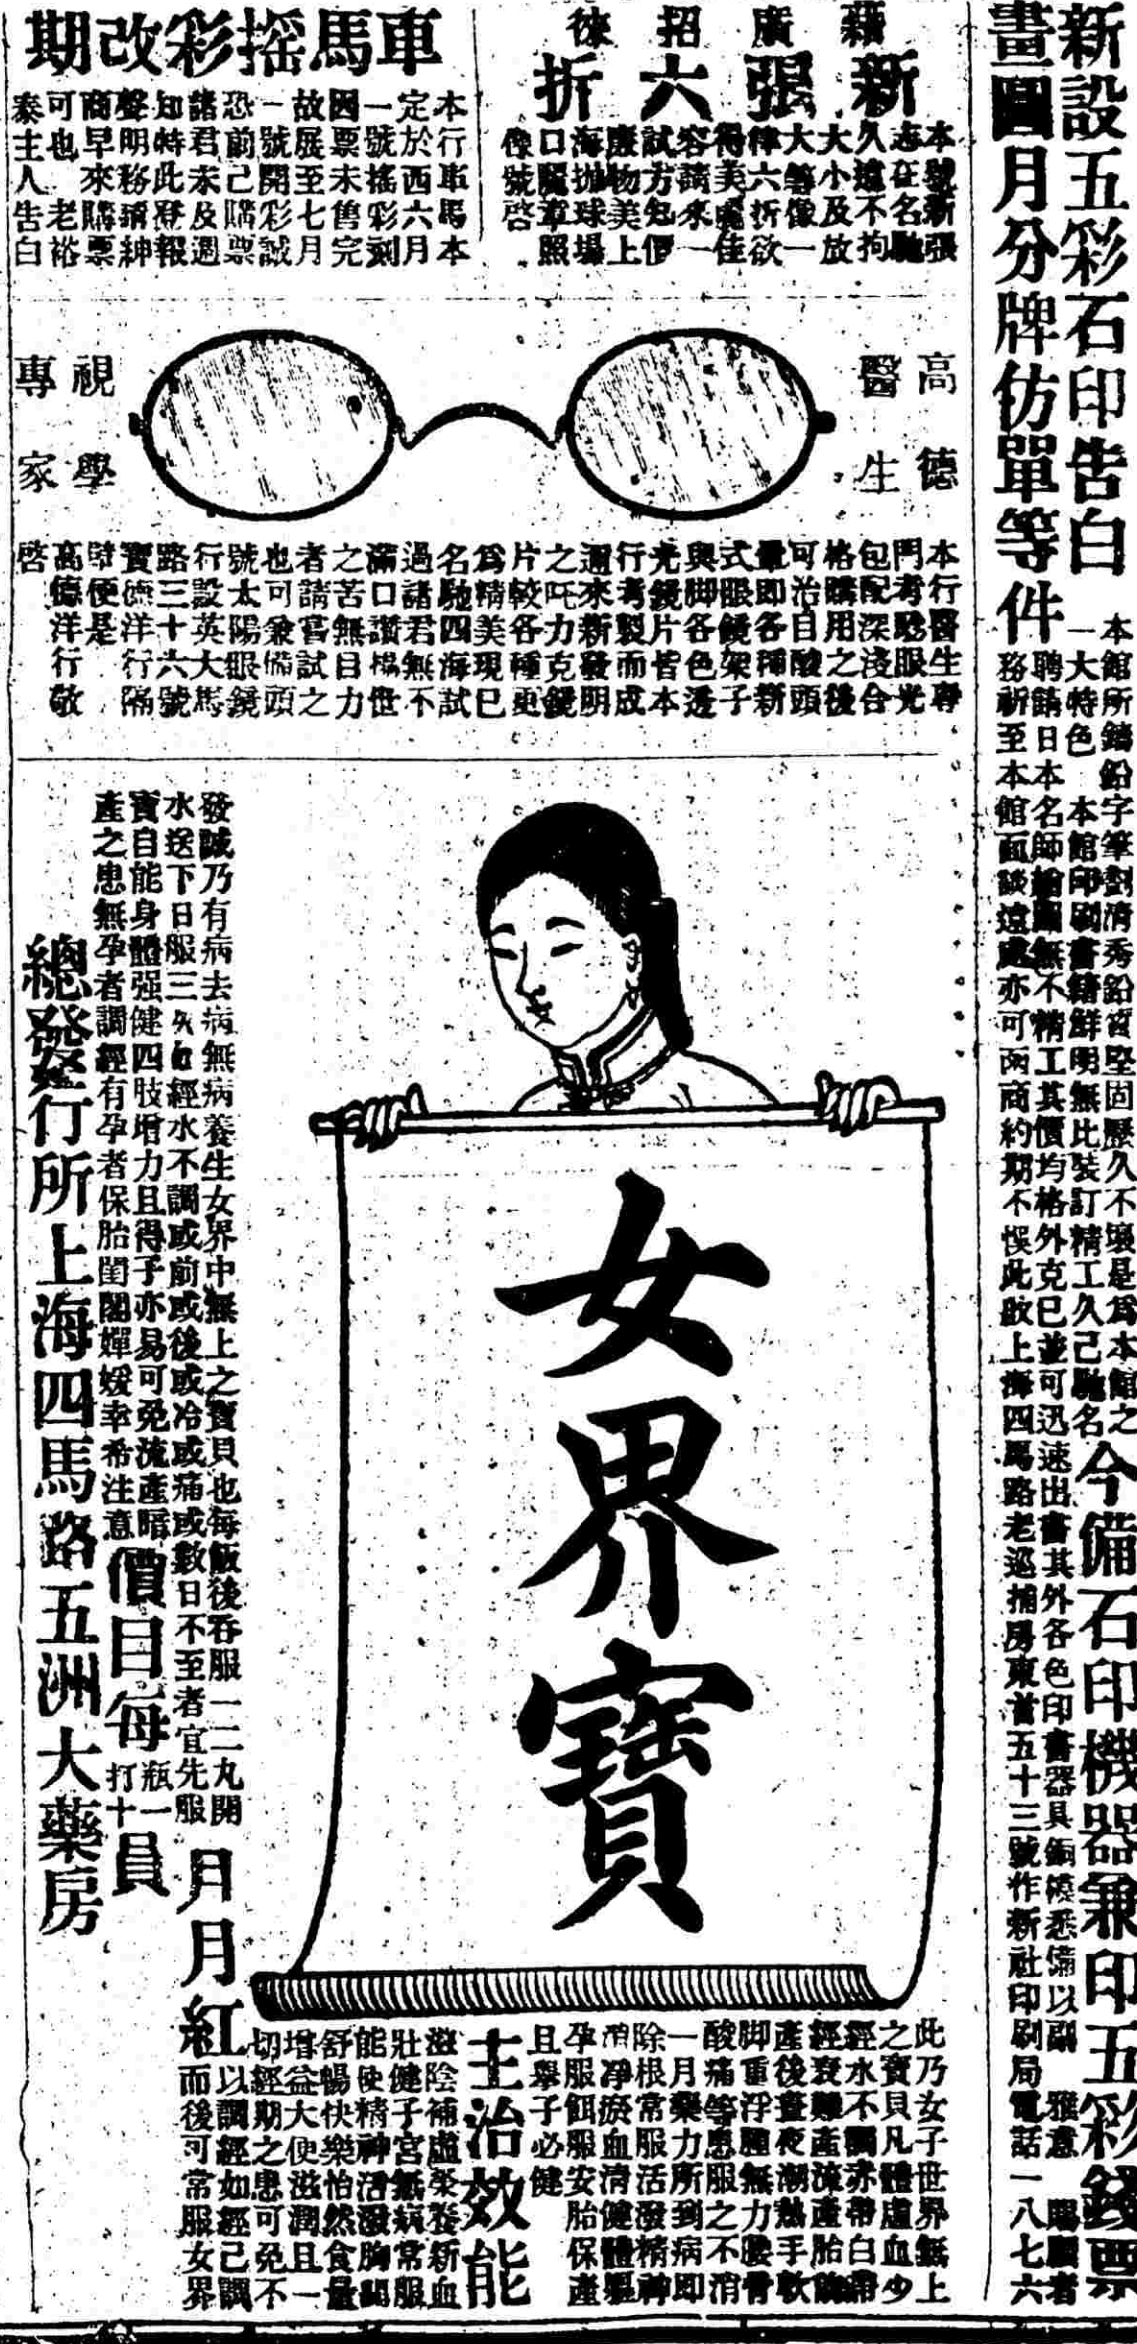 新設五彩石印告白
畫圖月分牌仿單等件
本館所鑄鉛字筆劃清秀鉛質堅固歷久不壞是爲本館之
一大特色 本館印刷書籍鮮明無比裝訂精工久已馳名
今備石印機器兼印五彩錢票
聘請日本名師繪圖無不精工其價均格外克已並可迅速出書其外各色印書器具銅模悉備以副 雅意 賜顧者
務祈至本館面談遠處亦可函商約期不悞此啟上海四馬路老巡捕房東首五十三號作新社印刷局 電話一八七六
藉廣招徠
新張六折
本號新張
志在名馳
久遠不拘
大小及放
大等像一
律六折欲
得美麗佳
容請來一
試方知價
廉物美上
海拋球場
口麗章照
像號啓
車馬搖彩改期
本行車馬本
定於西六月
一號搖彩刻
因票未售完
故展至七月
一號開彩誠
恐前己購票
諸君未及週
知特此登報
聲明務請紳
商早來購票
可也 老裕
泰主人告白
高德
醫生
視學
專家
本行醫生專
門考驗眼光
包配深淺合
格購用之後
可治自酸頭
暈即各種新
式眼鏡架子
與脚各色透
光鏡片皆本
行考製而成
邇來新發明
之吒力克鏡
片較各種更
爲精美現已
名馳四海試
過諸君無不
滿口讚揚世
之苦無目力
者請嘗試之
也可兼備頭
號太陽眼鏡
行設英大馬
路三十六號
寶德洋行隔
壁便是
高德洋行敬
啓
女界寶
此乃女子世界無上
之寶貝凡體虛血少
經水不調赤帶白帶
經衰難產流產胎
產後晝夜潮熱手軟
脚重浮腫無力腰骨
酸痛等患服之不消
一月藥力所到病即
除根常服活潑精神
淨瘀血清健體軀
孕服餌服安胎保產
且舉子必健
主治效能
滋陰補虛榮養新血
壯健子宮無病常服
能使精神活潑胸
舒暢快樂怡然食量
增益大便滋潤且一
切經期之患可免不
月月紅
以調經如經已調
而後可常服女界
發誠乃有病去病無病養生女界中無上之寶貝也每飯後吞服一二丸開
水送下日服三次如經水不調或前或後或冷或痛或數日不至者宜先服
寶自能身體强健四肢增力且得子亦易可免流產暗
產之患無孕者調經有孕者保胎閨閣嬋媛幸希注意
價目每瓶一打十員
總發行所上海四馬路五洲大藥房